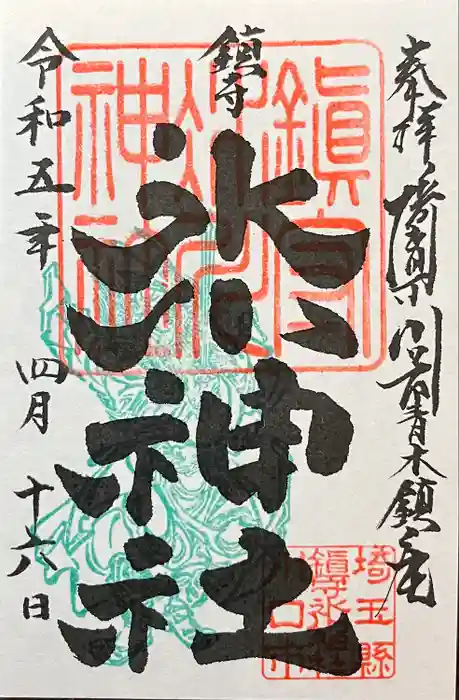 奉拝 埼玉県川口市青木鎮座
鎮守
氷川神社
令和五年 四月 十六日
鎮守氷川神社
埼玉縣
鎮守氷川神社
川口市